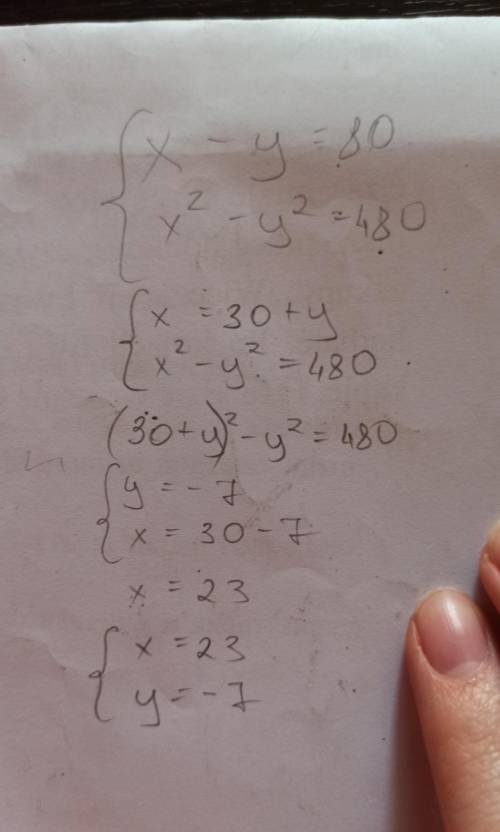 x - y = 80
x² - y² = 480
x = 30 + y
x² - y² = 480
(30 + y)² - y² = 480
y = -7
x = 30 - 7
x = 23
x = 23
y = -7